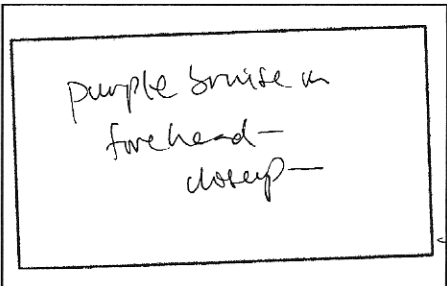 purple bruise on
forehead—
closeup—